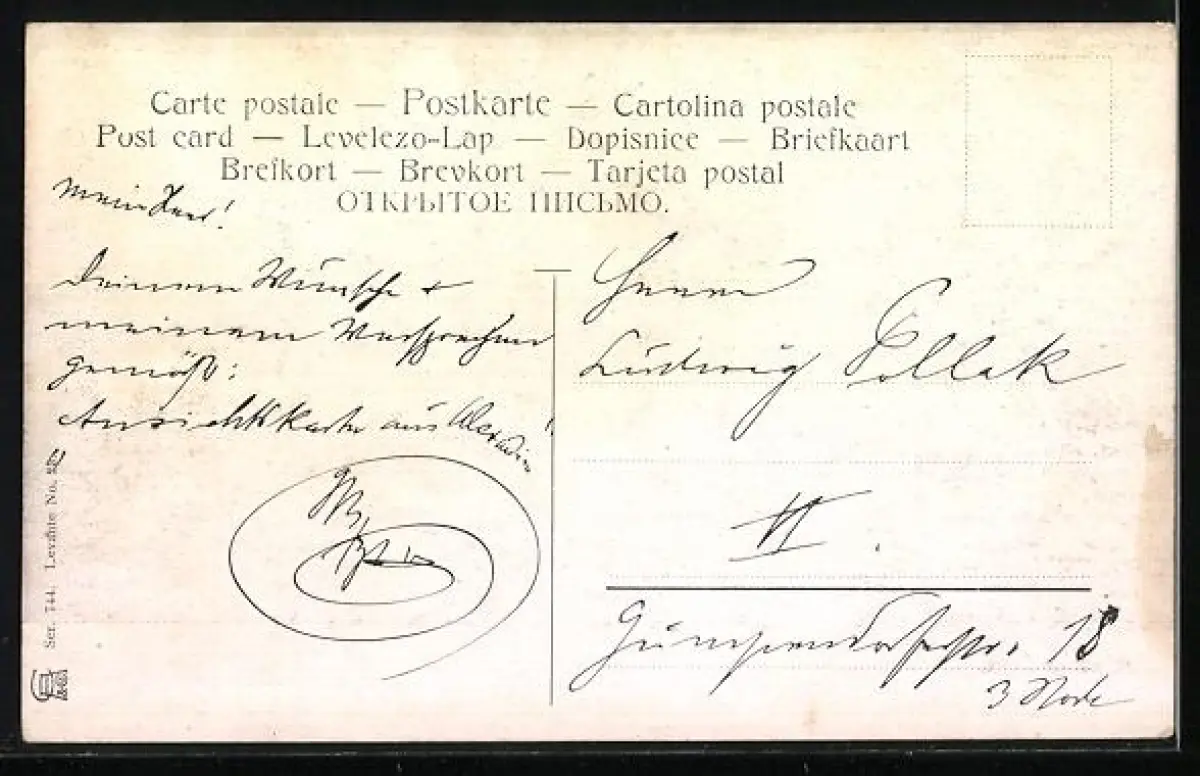 Carte postale — Postkarte — Cartolina postale
Post card — Levelezo-Lap — Dopisnice — Briefkaart
Brefkort — Brevkort — Tarjeta postal
ОТКРЫТОЕ ПИСЬМО.
Mein
Deinem Wunsche +
meinem Versprechen
gemäß:
Ansichtskarte aus
Herrn
Ludwig Pollak
VI.
Gumpendorferstr. 18
3
Ser. 744. Levante No.